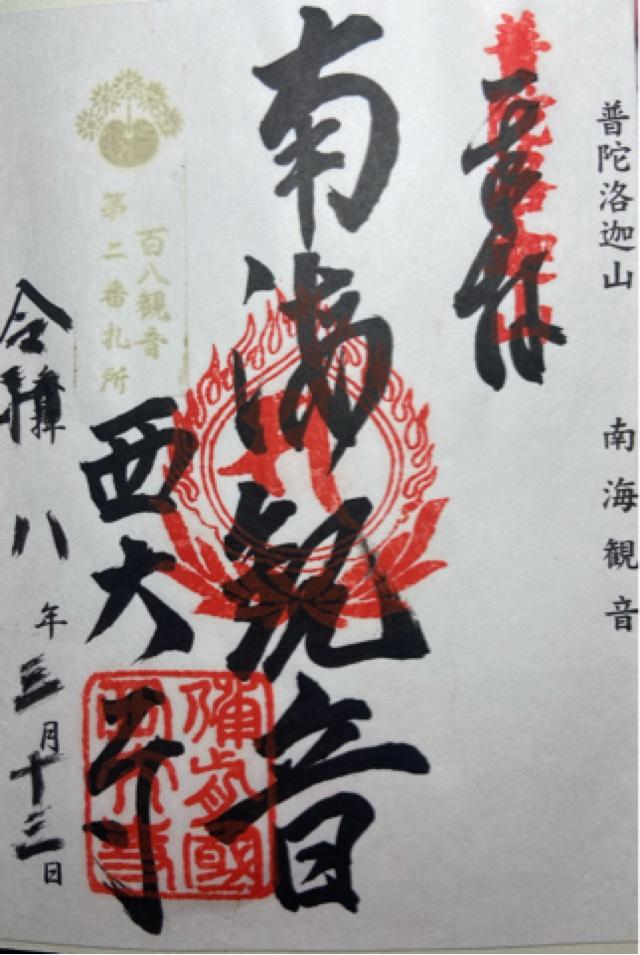 普陀洛迦山 南海観音
奉拝
普陀洛迦山
南海観音
百八観音
第二番札所
西大寺
備前國
西大寺
令和八年三月十三日